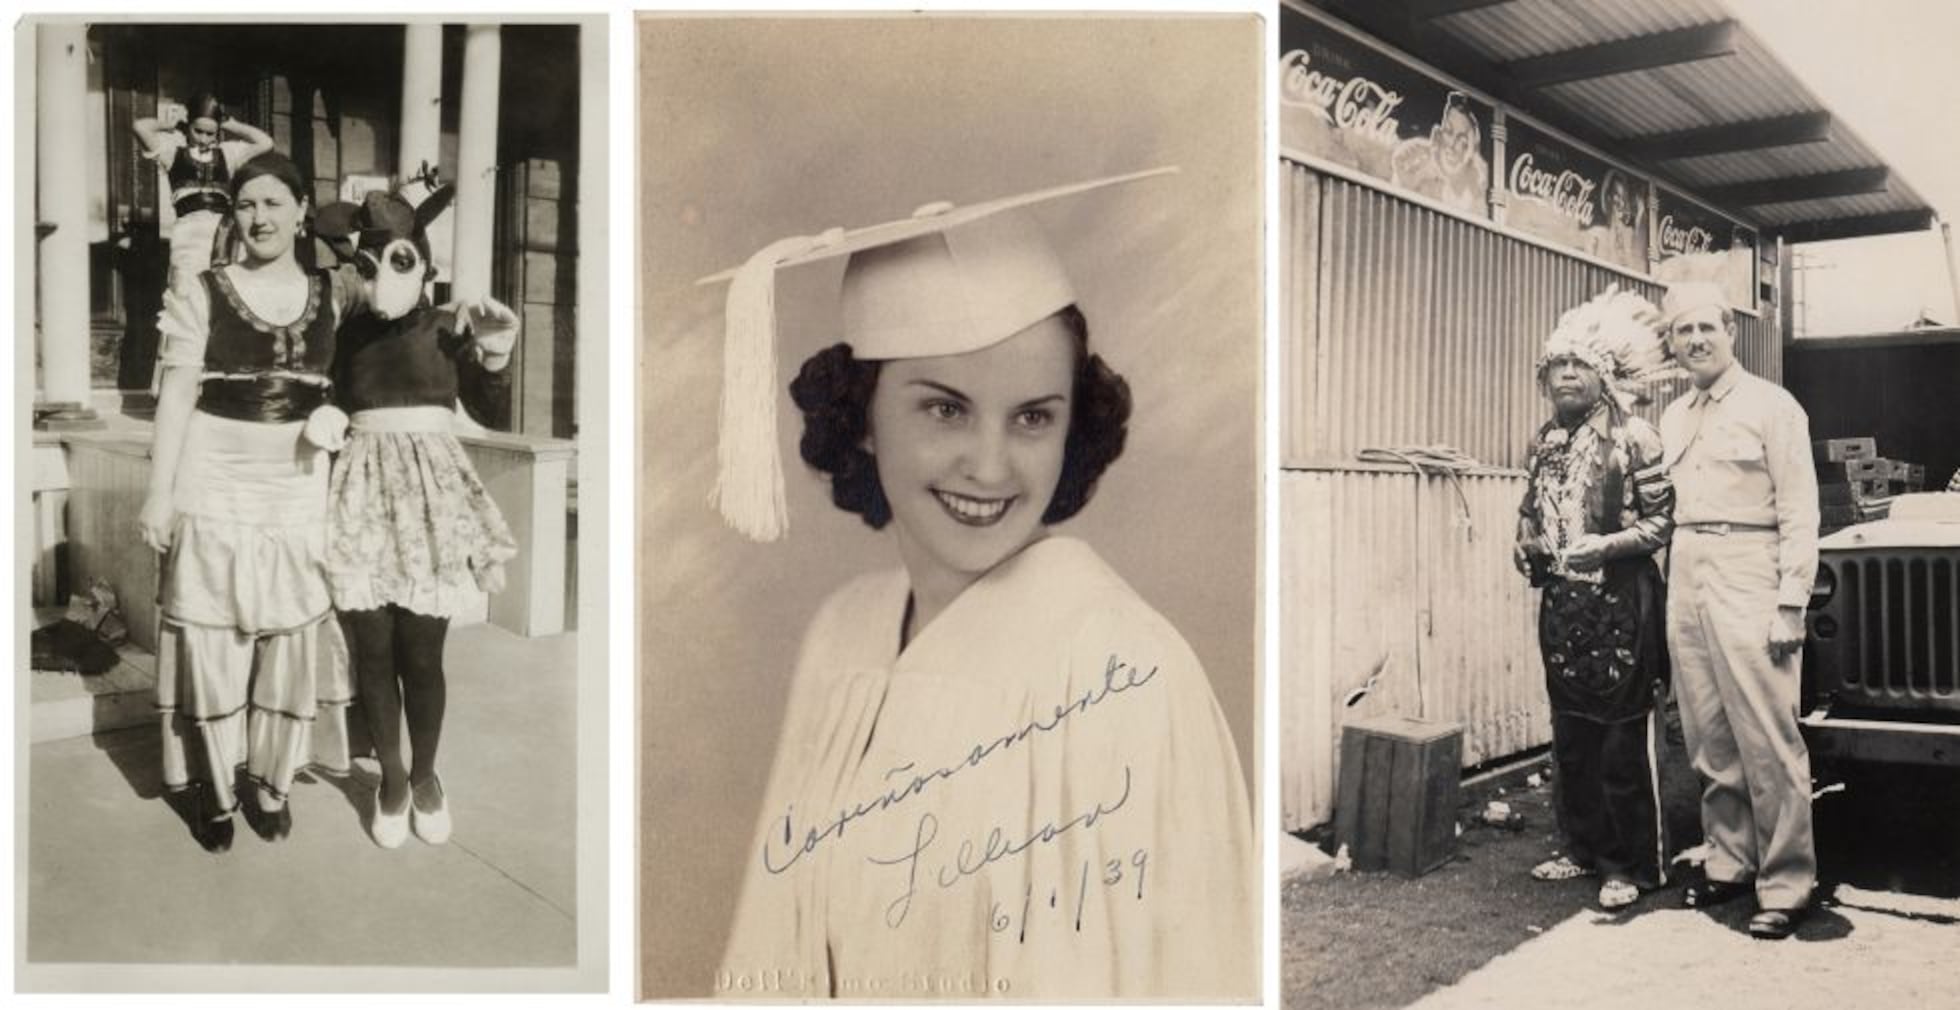 Cariñosamente
Lillian
6/1/39
DRINK
Coca-Cola
Coca-Cola
Coca-Cola